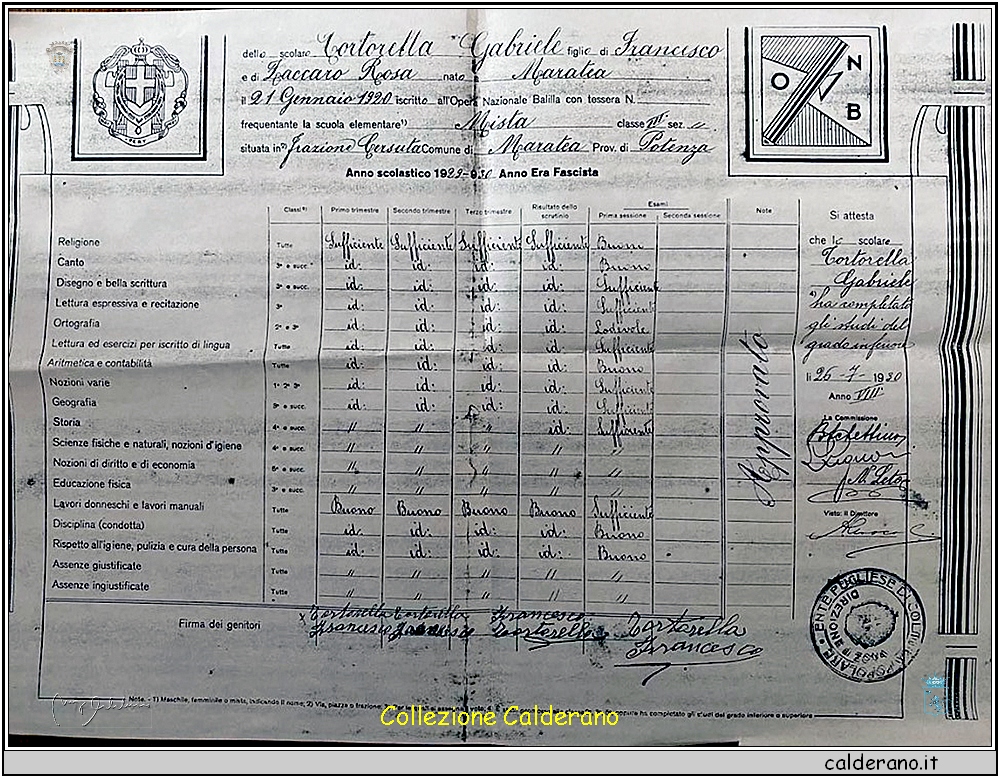 dello scolaro Tortorella Gabriele figlio di Francesco
e di Zaccaro Rosa nato a Maratea
il 21 Gennaio 1920 iscritto all'Opera Nazionale Balilla con tessera N.
frequentante la scuola elementare¹) Mista classe III sez. "
situata in²) frazione Cersuta Comune di Maratea Prov. di Potenza
Anno scolastico 1929-930 Anno Era Fascista
O N B
Classi Primo trimestre Secondo trimestre Terzo trimestre Risultato dello scrutinio Esami Prima sessione Seconda sessione Note
Religione Tutte Sufficiente Sufficiente Sufficiente Sufficiente Buono
Canto 3ª e succ. id: id: id: id: Buono
Disegno e bella scrittura 3ª e succ. id: id: id: id: Sufficiente
Lettura espressiva e recitazione 3ª id: id: id: id: Sufficiente
Ortografia 2ª e 3ª id: id: id: id: Lodevole
Lettura ed esercizi per iscritto di lingua Tutte id: id: id: id: Sufficiente
Aritmetica e contabilità Tutte id: id: id: id: Buono
Nozioni varie 1ª 2ª 3ª id: id: id: id: Sufficiente
Geografia 3ª e succ. id: id: id: id: Sufficiente
Storia 4ª e succ. " " " id: Sufficiente
Scienze fisiche e naturali, nozioni d'igiene 4ª e succ. " " " " "
Nozioni di diritto e di economia 5ª e succ. " " " " "
Educazione fisica 3ª e succ. " " " " "
Lavori donneschi e lavori manuali Tutte Buono Buono Buono Buono Sufficiente
Disciplina (condotta) Tutte id: id: id: id: Buono
Rispetto all'igiene, pulizia e cura della persona Tutte id: id: id: id: Buono
Assenze giustificate Tutte " " " " "
Assenze ingiustificate Tutte " " " " "
Approvato
Firma dei genitori
Tortorella Tortorella Francesco Tortorella
Francesco Francesco Tortorella Francesco
Si attesta
che lo scolare
Tortorella
Gabriele
ha completato
gli studi del
grado inferiore
lì 26-7-1930
Anno VIII
La Commissione
N. Leto
Visto: Il Direttore
ENTE PUGLIESE DI COLTURA POPOLARE
DIREZIONE
Note. - 1) Maschile, femminile o mista, indicando il nome; 2) Via, piazza o frazione
oppure ha completato gli studi del grado inferiore o superiore
Collezione Calderano
calderano.it